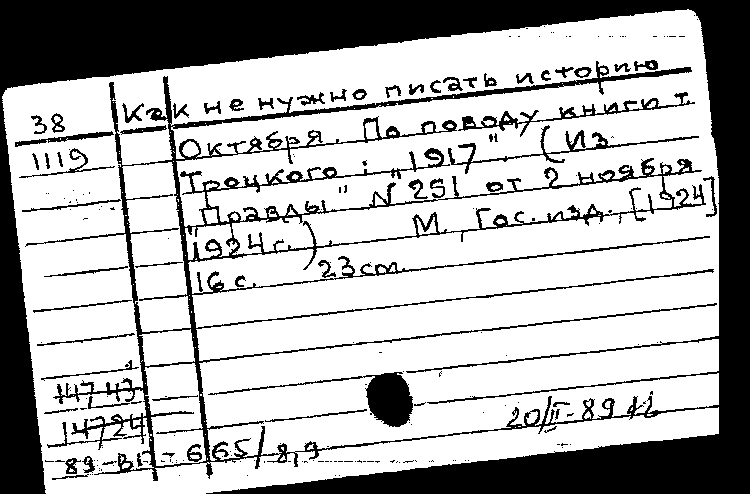 38 Как не нужно писать историю
1119 Октября. По поводу книги т.
Троцкого: "1917". (Из
"Правды" N 251 от 2 ноября
1924 г.). М., Гос. изд., [1924]
16 с. 23 cm.
14743
14724
20/II-89
89-ВП-665/8,9